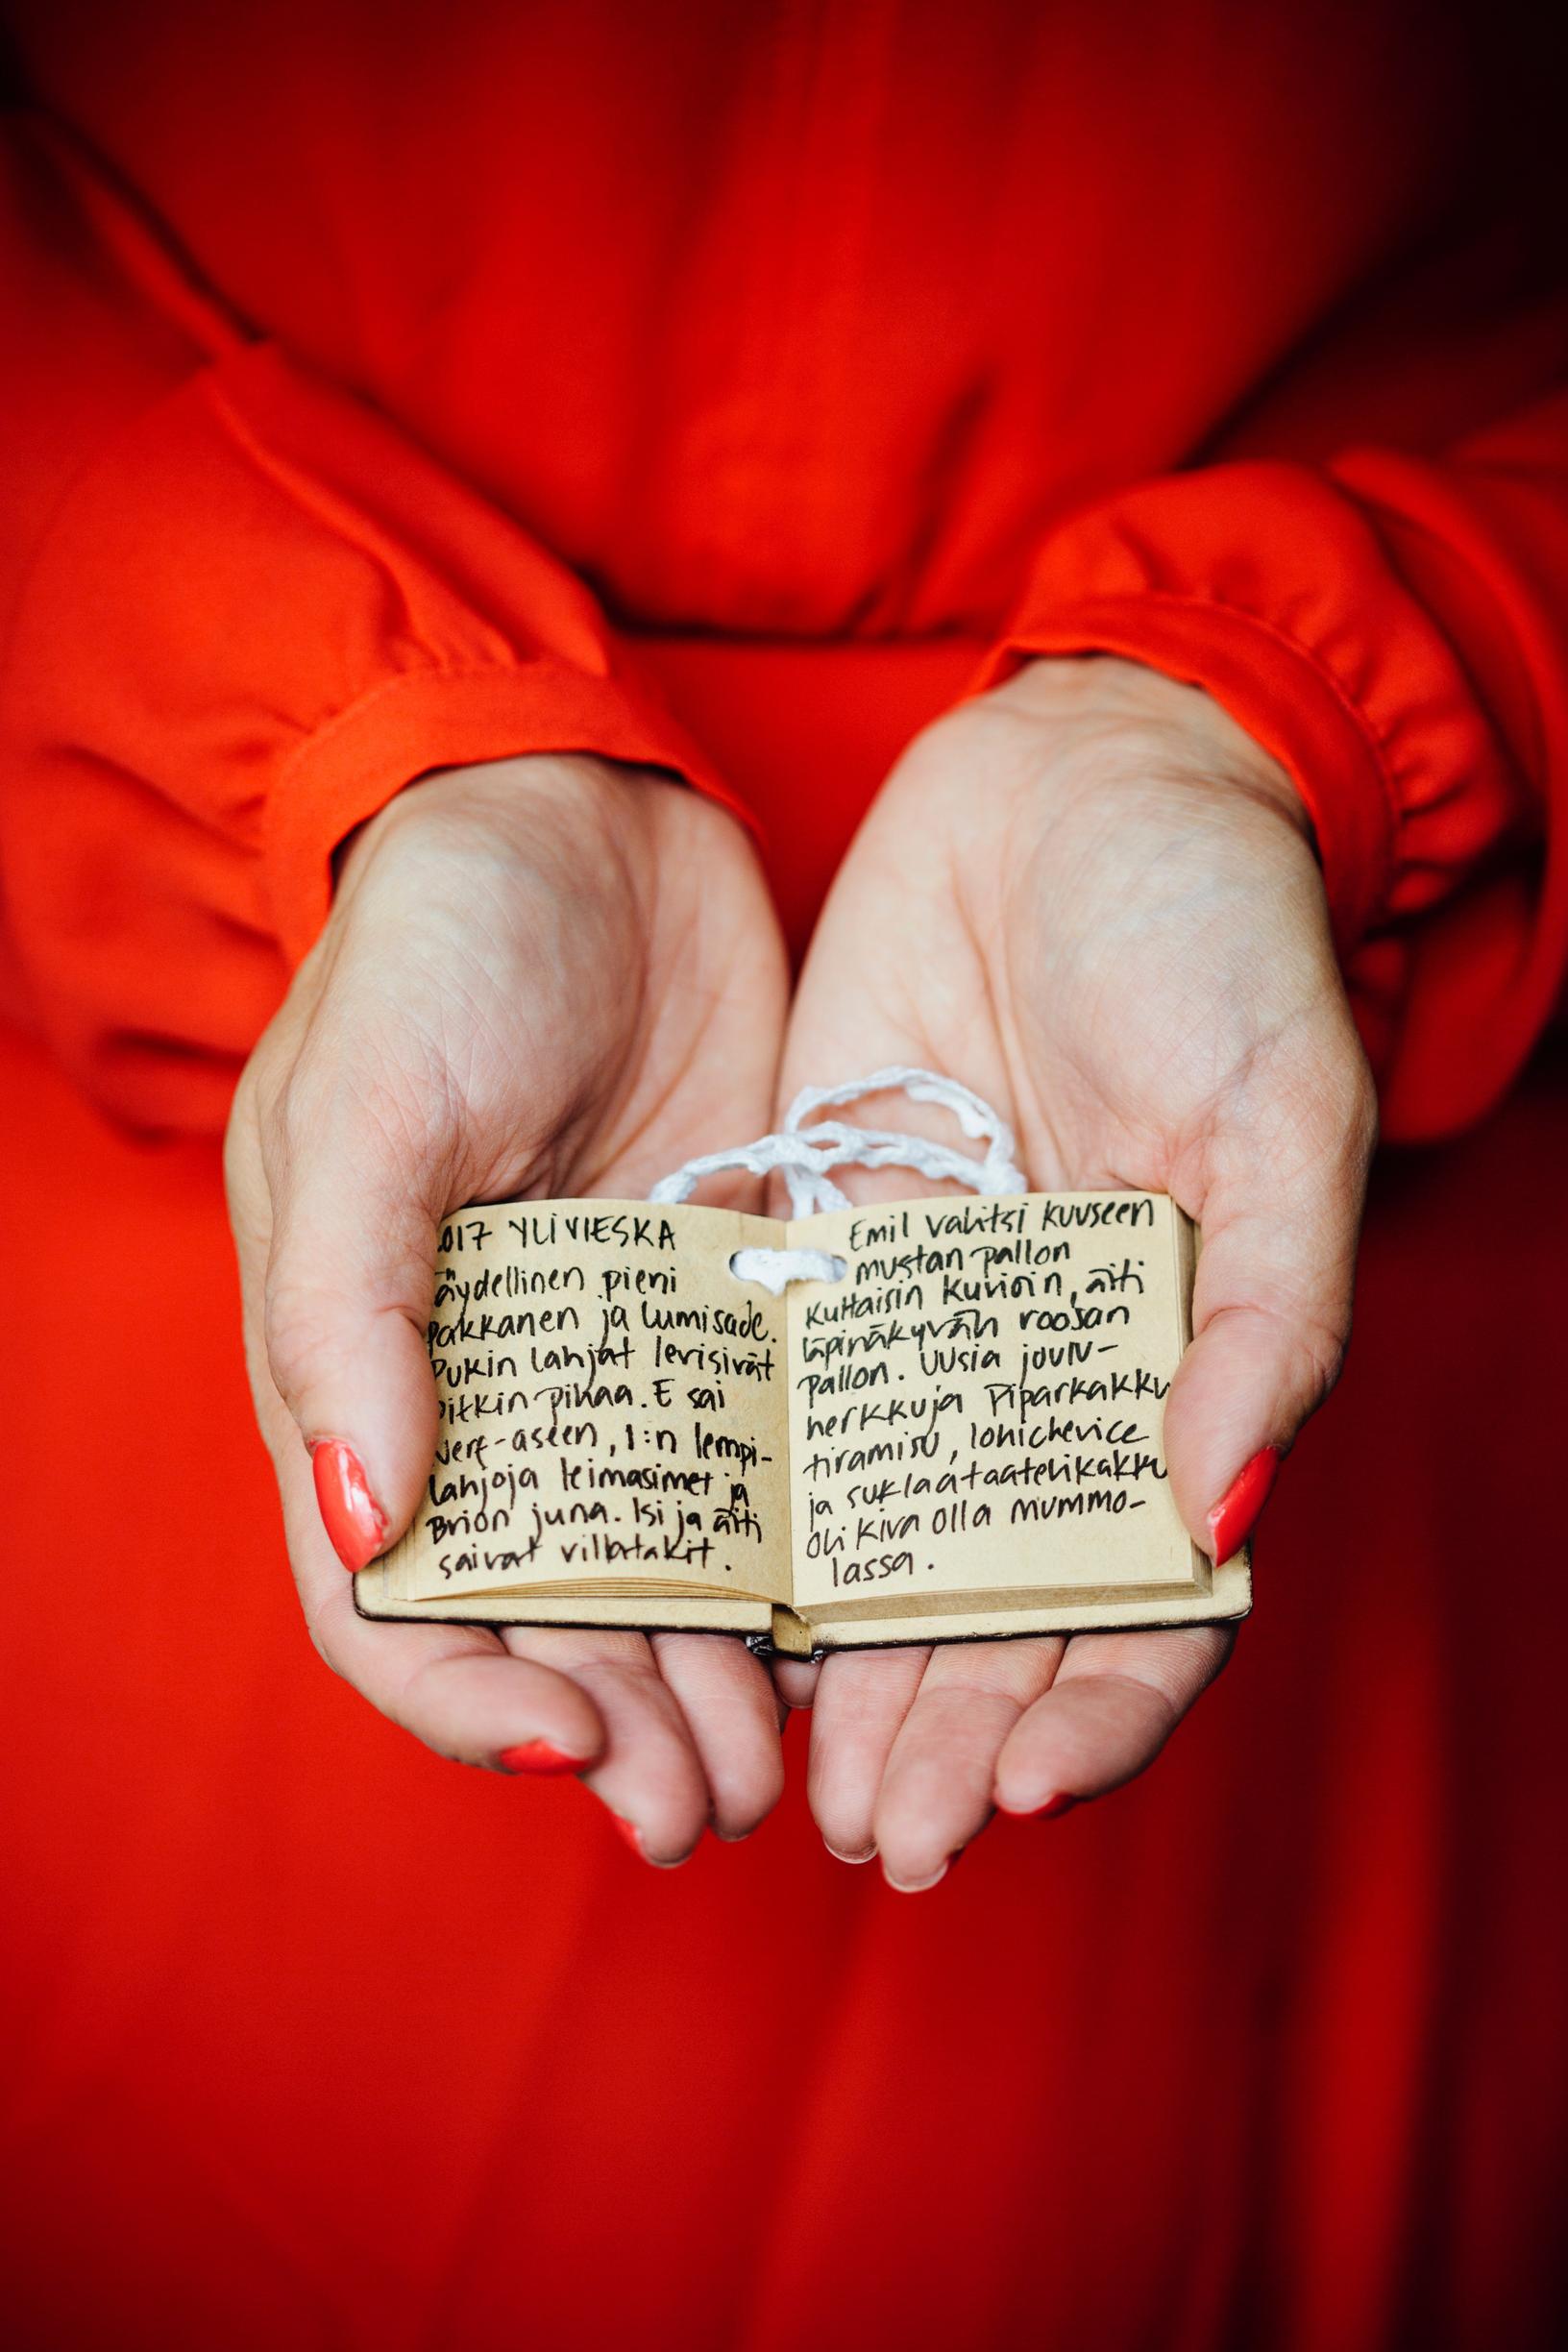 2017 YLIVIESKA
äydellinen pieni
pakkanen ja lumisade.
Pukin lahjat levisivät
pitkin pihaa. E sai
Nerf-aseen, I:n lempi-
lahjoja leimasimet ja
Brion juna. Isi ja äiti
saivat villatakit.
Emil valitsi kuuseen
mustan pallon
kultaisin kuvioin, äiti
läpinäkyvän roosan
pallon. Uusia joulu-
herkkuja piparkakku
tiramisu, lohichevice
ja suklaataatelikakku
Oli kiva olla mummo-
lassa.